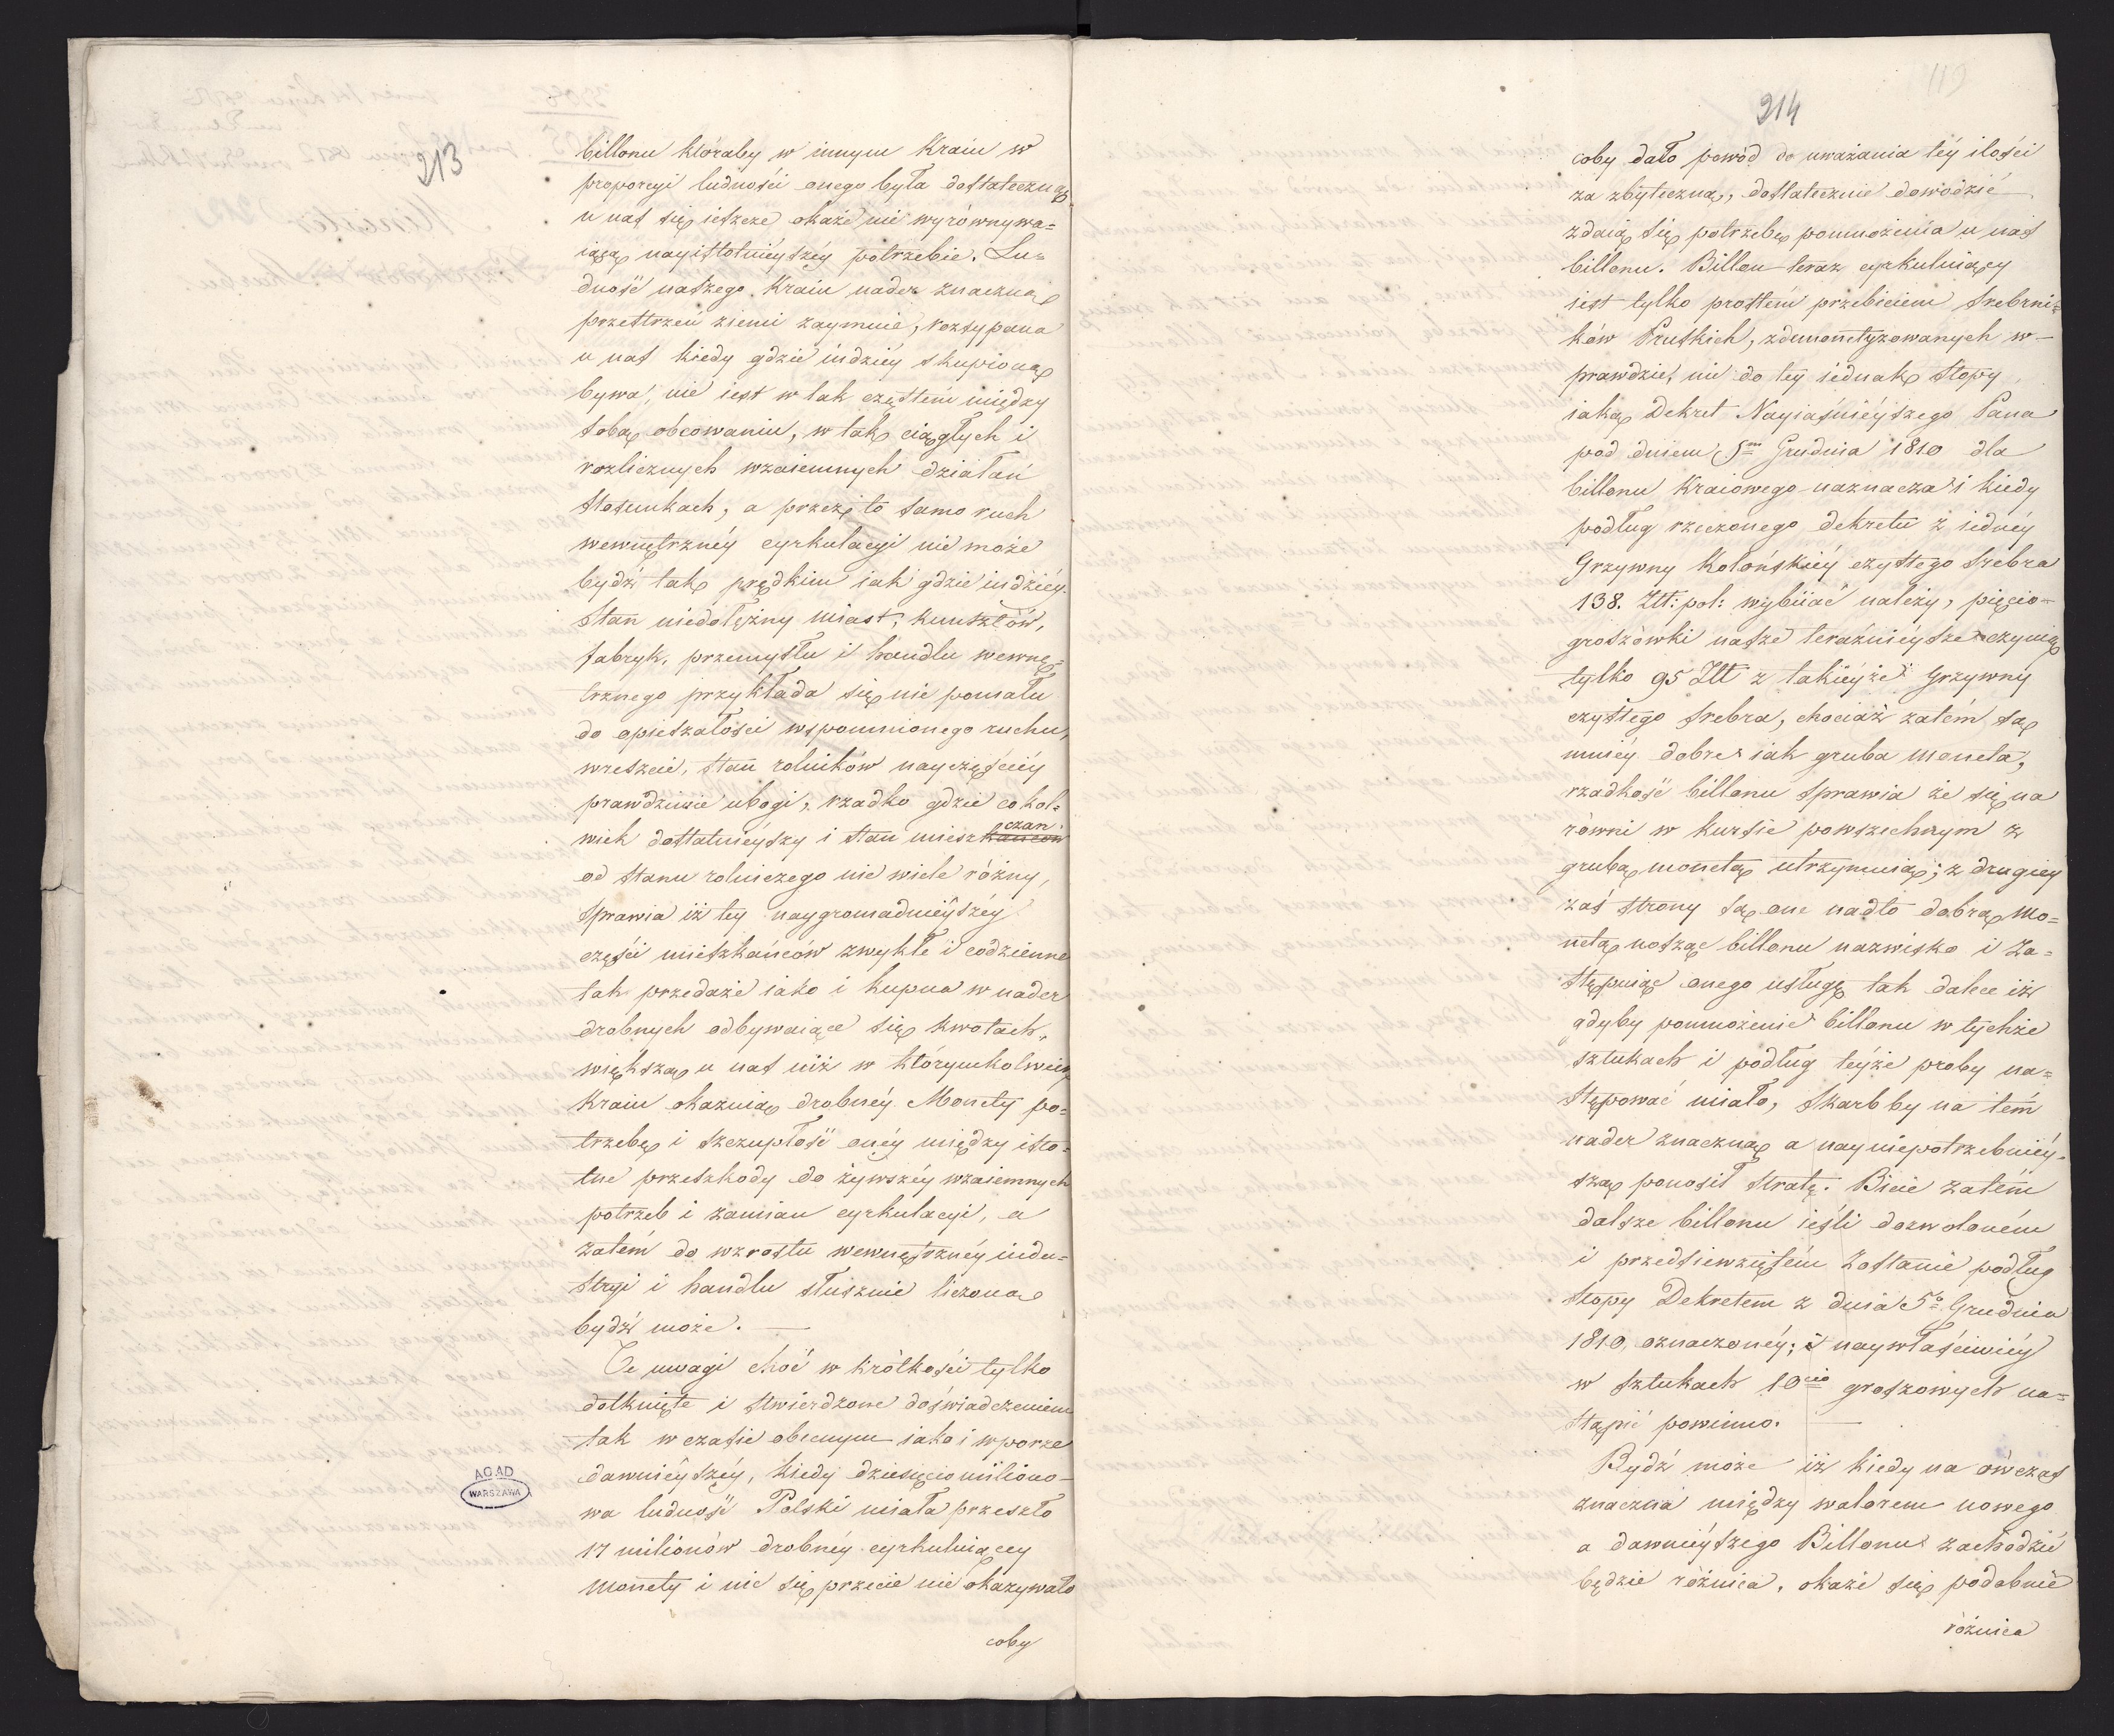 213
billonu któraby w innym Kraiu w
proporcyi ludności onego była dostateczną,
u nas się ieszcze okaże nie wyrównywa=
iącą nayistotnieyszéy potrzebie. Lu=
dność naszego Kraiu nader znaczną
przestrzeń ziemi zaymuie, rozsypana
u nas kiedy gdzie indziéy skupioną
bywa, nie iest w tak częstém między
sobą obcowaniu, w tak ciągłych i
rozlicznych wzaiemnych działań
stosunkach, a przez to samo ruch
wewnętrznéy cyrkulacyi nie może
bydź tak prędkim iak gdzie indziéy.
Stan niedołężny miast, kunsztów,
fabryk, przemysłu i handlu wewnę=
trznego przykłada się nie pomału
do opieszałości wspomnionego ruchu,
wreszcie, stan rolników nayczęściéy
prawdziwie ubogi, rzadko gdzie cokol=
wiek dostatnieyszy i stan mieszkańców czan
od stanu rolniczego nie wiele różny,
sprawia iż téy naygromadnieyszéy
części mieszkańców zwykłe i codzienne
tak przedaże iako i kupna w nader
drobnych odbywaiące się kwotach,
większą u nas niż w którymkolwiek
Kraiu okazuią drobnéy Monety po=
trzebę i szczupłość onéy między isto=
tne przeszkody do żywszéy wzaiemnych
potrzeb i zamian cyrkulacyi, a
zatém do wzrostu wewnętrznéy indu=
stryi i handlu słusznie liczoną
bydź może. —
Te uwagi choć w krótkości tylko
dotknięte i stwierdzone doświadczeniem
tak w czasie obecnym iako i w porze
dawnieyszéy, kiedy dziesięcio miliono-
wa ludność Polski miała przeszło
17 milionów drobnéy cyrkuluiącey
Monety i nic się przecie nie okazywało
coby
AGAD
WARSZAWA
214
119
coby dało powód do uważania téy ilości
za zbyteczną, dostatecznie dowodzić
zdaią się potrzebę pomnożenia u nas
billonu. Billon teraz cyrkuluiący
iest tylko prostém przebiciem srebrni=
ków Pruskich, zdemonetyzowanych w—
prawdzie, nie do téy iednak stopy
iaką Dekret Nayiaśnieyszego Pana
pod dniem 5m Grudnia 1810 dla
billonu Kraiowego naznacza i kiedy
podług rzeczonego dekretu z iednéy
Grzywny Kolońskiéy czystego srebra
138. Złł: pol: wybiiać należy, pięcio-
groszówki nasze teraźnieysze czynią
tylko 95 Złł z takiéyże Grzywny
czystego srebra, chociaż zatém są
mniéy dobre iak gruba moneta,
rzadkość billonu sprawia że się na
równi w kursie powszechnym z
grubą monetą utrzymuią; z drugiey
zaś strony są one nadto dobrą mo=
netą nosząc billonu nazwisko i za=
stępuiąc onego usługę tak dalece iż
gdyby pomnożenie billonu w tychże
sztukach i podług teyże proby na=
stępować miało, Skarb by na tém
nader znaczną a nayniepotrzebniéy-
szą ponosił stratę. Bicie zatém
dalsze billonu ieśli dozwoloném
i przedsiewziętém zostanie podług
stopy Dekretem z dnia 5o Grudnia
1810 oznaczonéy; i naywłaściwiéy
w sztukach 10cio groszowych na=
stąpić powinno. —
Bydź może iż kiedy na ówczas
znaczna między walorem nowego
a dawnieyszego Billonu zachodzić
będzie różnica, okaże się podobnie
różnica